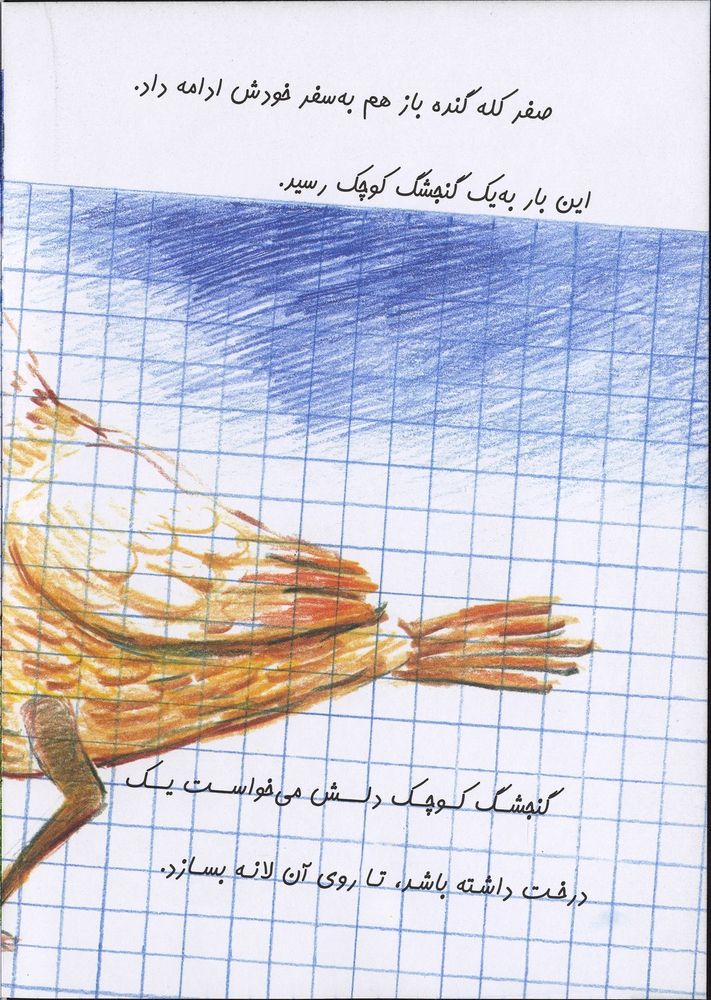 صفر کله گنده باز هم به‌سفر خودش ادامه داد.
این بار به‌یک گنجشگ کوچک رسید.
گنجشگ کوچک دلش می‌خواست یک
درخت داشته باشد، تا روی آن لانه بسازد.